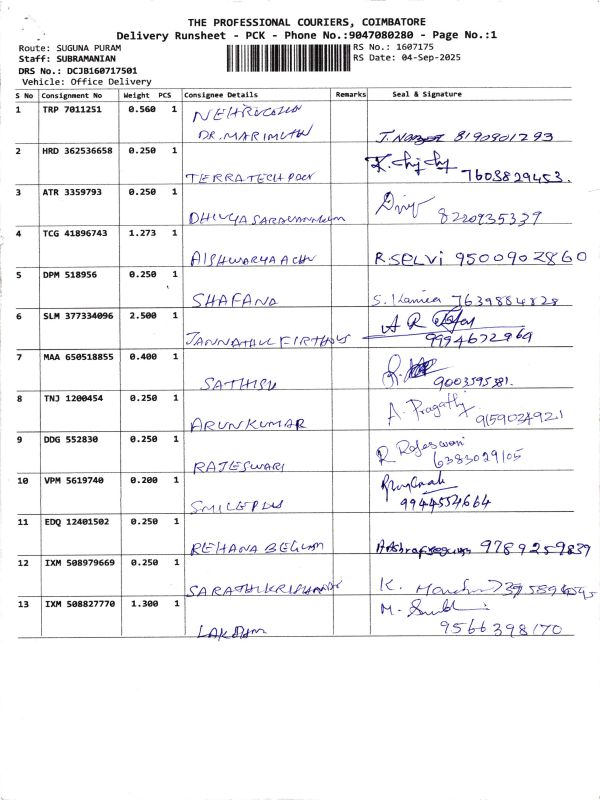 THE PROFESSIONAL COURIERS, COIMBATORE
Delivery Runsheet - PCK - Phone No.:9047080280 - Page No.:1
Route: SUGUNA PURAM
RS No.: 1607175
Staff: SUBRAMANIAN
RS Date: 04-Sep-2025
DRS No.: DCJB160717501
Vehicle: Office Delivery
S No Consignment No Weight PCS Consignee Details Remarks Seal & Signature
1 TRP 7011251 0.560 1
DR. MARIMUTH 8190901293
2 HRD 362536658 0.250 1
TERRATECH 7603829453.
3 ATR 3359793 0.250 1
8220935339
4 TCG 41896743 1.273 1
AISHWARYA R. SELVI 9500902860
5 DPM 518956 0.250 1
SHAFANA 7639884828
6 SLM 377334096 2.500 1
9994672969
7 MAA 650518855 0.400 1
SATHISH 9003595381.
8 TNJ 1200454 0.250 1
ARUNKUMAR A. Pragathi 9159034921
9 DDG 552830 0.250 1
RAJESWARI R Rajeswari 6383029105
10 VPM 5619740 0.200 1
9944554664
11 EDQ 12401502 0.250 1
REHANA BEGUM 9789259839
12 IXM 508979669 0.250 1
K.
13 IXM 508827770 1.300 1
9566398170